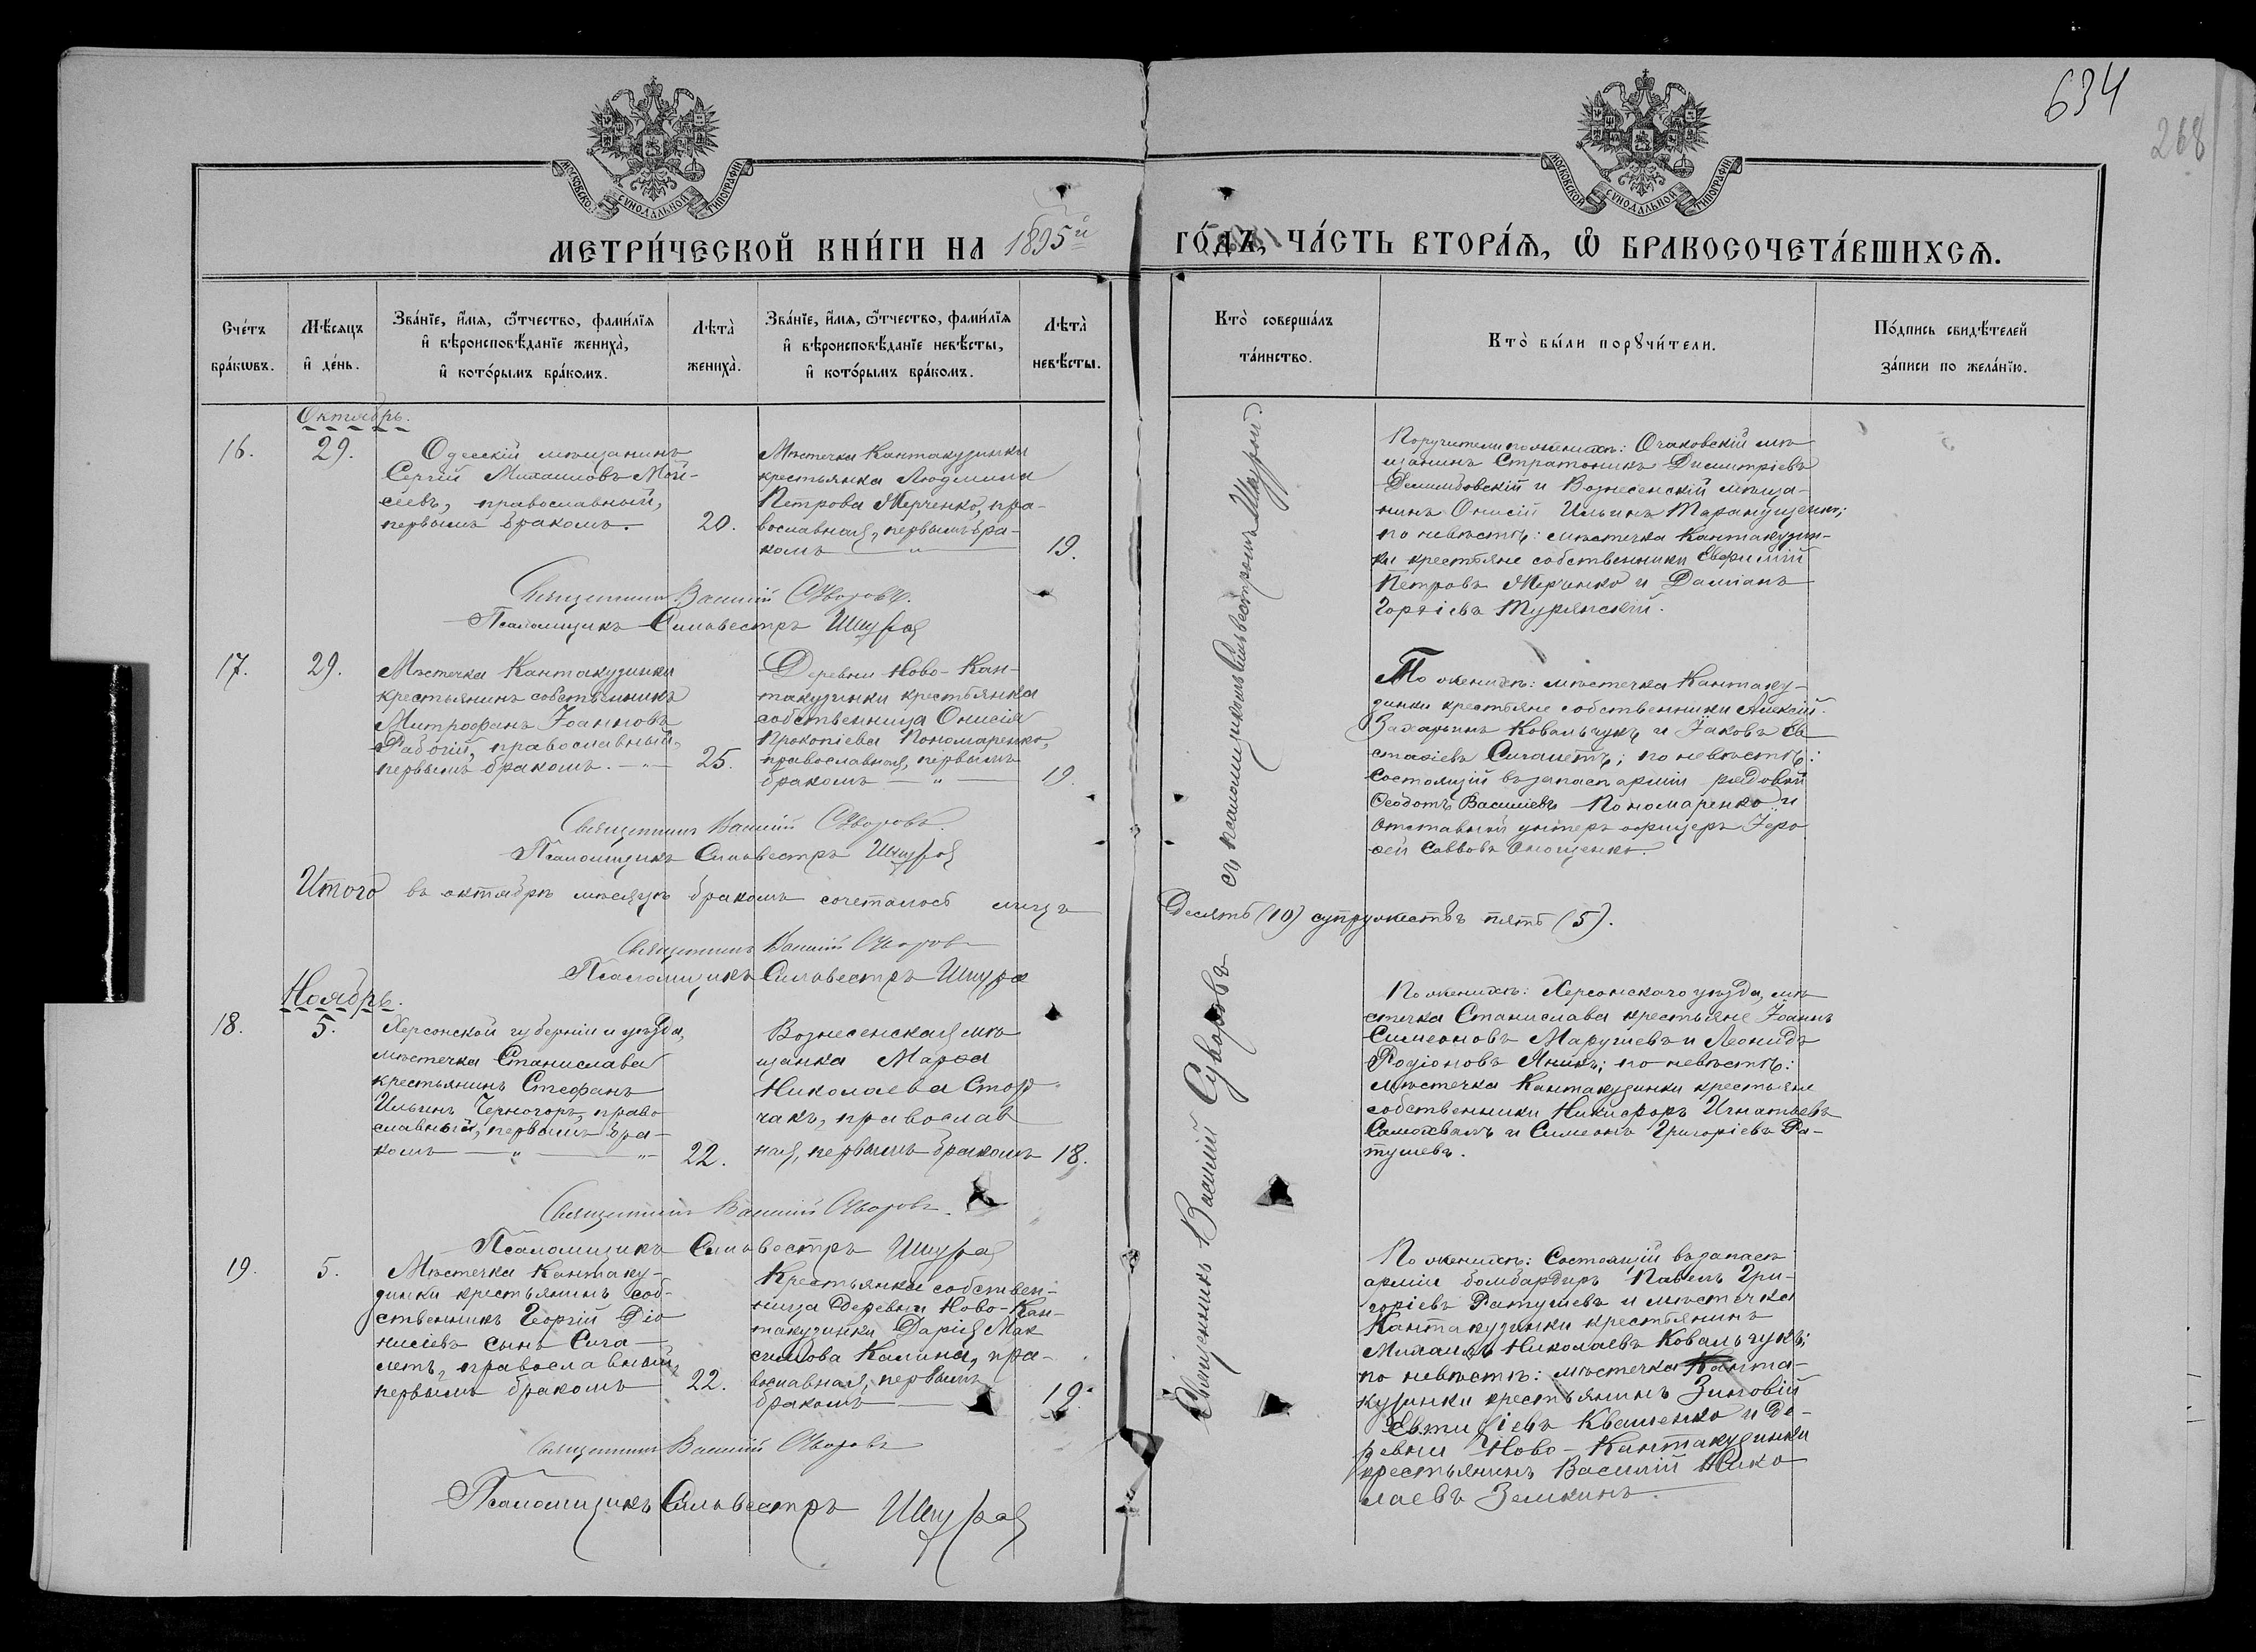 634
268
МОСКОВСКОЙ СѴНОДАЛЬНОЙ ТИПОГРАФІИ
МОСКОВСКОЙ СѴНОДАЛЬНОЙ ТИПОГРАФІИ
МЕТРИ́ЧЕСКОЙ КНИ́ГИ НА 1895й ГО́ДЪ, ЧА́СТЬ ВТОРА́Ѧ, Ѡ҆ БРАКОСОЧЕТА́ВШИХСѦ.
Сче́тъ
бра́кѡвъ.
Мѣ́сѧцъ
и҆ де́нь.
Зва́нїе, и҆́мѧ, ѻ҆́тчество, фами́лїѧ
и҆ вѣроисповѣ́данїе жениха̀,
и҆ кото́рымъ бра́комъ.
Лѣта̀
жениха̀.
Зва́нїе, и҆́мѧ, ѻ҆́тчество, фами́лїѧ
и҆ вѣроисповѣ́данїе невѣ́сты,
и҆ кото́рымъ бра́комъ.
Лѣта̀
невѣ́сты.
Кто̀ соверша́лъ
та́инство.
Кто̀ бы́ли порꙋчи́тели.
По́дпись свидѣ́телей
за́писи по жела́нїю.
Октябрь.
16.
29.
Одесскій мѣщанинъ
Сергій Михаиловъ Мой-
сеевъ, православный,
первымъ бракомъ.
20.
Мѣстечка Кантакузинки
крестьянка Людмила
Петрова Марченко, пра-
вославная, первымъ бра-
комъ
19.
Поручители по женихѣ: Очаковскій мѣ
щанинъ Стратоникъ Димитріевъ
и Вознесенскій мѣща-
нинъ Онисій Ильинъ
по невѣстѣ: мѣстечка Кантакузин-
ки крестьяне собственники Евфимій
Петровъ Марченко и Даміанъ
Гордіевъ Турянскій.
Священникъ Василій Суворовъ.
Псаломщикъ Сильвестръ Шщурой
17.
29.
Мѣстечка Кантакузинки
крестьянинъ собственникъ
Митрофанъ Іоанновъ
Рабогій, православный,
первымъ бракомъ.
25.
Деревни Ново-Кан-
такузинки крестьянка
собственница Онисія
Прокопіева Пономаренко,
православная, первымъ
бракомъ
19.
По женихѣ: мѣстечка Кантаку-
зинки крестьяне собственники Алексій
Захарьинъ Ковальчукъ и Іаковъ Ев
стафіевъ Сигалетъ; по невѣстѣ:
Состоящій въ запасѣ арміи рядовой
Ѳеодотъ Василіевъ Пономаренко и
отставной унтеръ офицеръ Іеро
ѳей Саввовъ Онощенко.
Священникъ Василій Суворовъ.
Псаломщикъ Сильвестръ
Итого въ октябрѣ мѣсяцѣ бракомъ сочеталось лицъ
Десять (10) супружествъ пять (5).
Священникъ Василій Суворовъ
Псаломщикъ Сильвестръ
Ноябрь.
18.
5.
Херсонской губерніи и уѣзда,
мѣстечка Станислава
крестьянинъ Стефанъ
Ильинъ Черногоръ, право
славный, первымъ бра-
комъ
22.
Вознесенская мѣ
щанка Марѳа
Николаева Стор
чакъ, православ
ная, первымъ бракомъ
18.
По женихѣ: Херсонскаго уѣзда, мѣ
стечка Станислава крестьяне Іоаннъ
Симеоновъ Марушевъ и Леонидъ
Родіоновъ Яникъ; по невѣстѣ:
мѣстечка Кантакузинки крестьяне
собственники Никифоръ Игнатьевъ
Самохвалъ и Симеонъ Григоріевъ Ра-
тушевъ.
Священникъ Василій Суворовъ.
Псаломщикъ Сильвестръ
19.
5.
Мѣстечка Кантаку-
зинки крестьянинъ соб-
ственникъ Георгій Діо
нисіевъ сынъ Сига-
летъ, православный,
первымъ бракомъ
22.
Крестьянка собствен-
ница деревни Ново-Кан-
такузинки Дарія Мак
симова Калина, пра-
вославная, первымъ
бракомъ
19.
По женихѣ: Состоящій въ запасѣ
арміи бомбардиръ Павелъ Гри-
горіевъ Ратушевъ и мѣстечка
Кантакузинки крестьянинъ
Михаилъ Николаевъ Ковальчукъ;
по невѣстѣ: мѣстечка Канта-
кузинки крестьянинъ Зиновій
Евтихіевъ Квашенко и де-
ревни Ново-Кантакузинки
крестьянинъ Василій Нико
лаевъ Земкинъ.
Священникъ Василій Суворовъ
Псаломщикъ Сильвестръ
Священникъ Василій Суворовъ съ псаломщикомъ Сильвестромъ